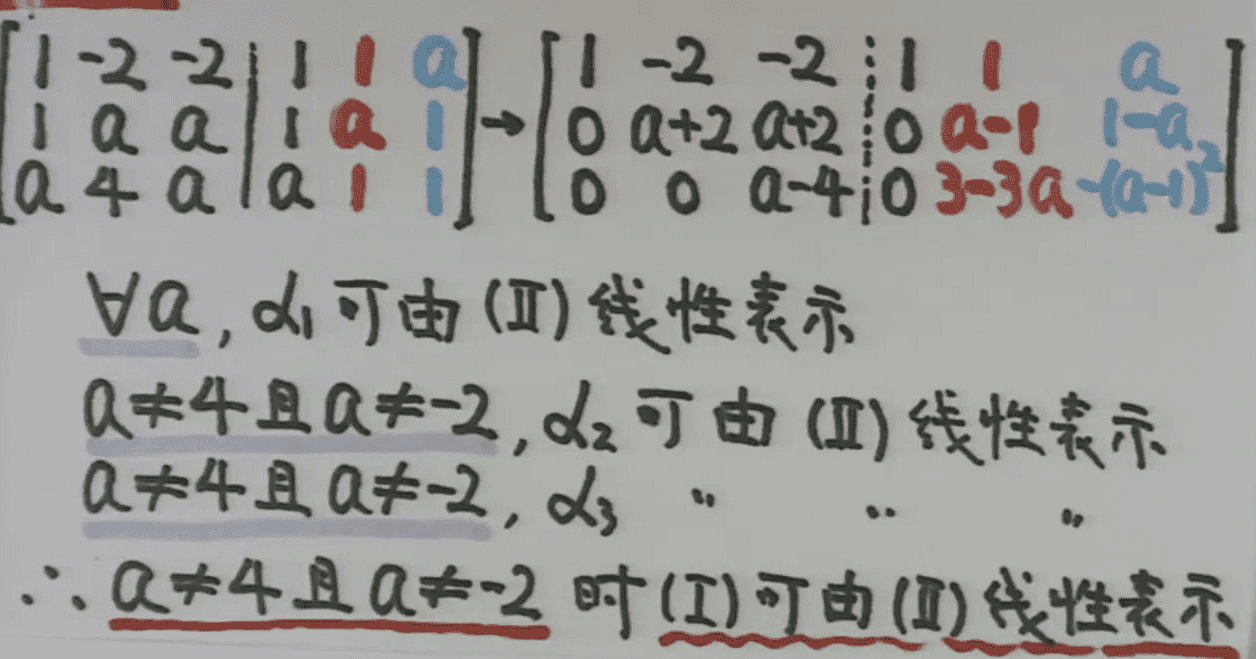 [1 -2 -2 | 1 1 a] → [1 -2 -2 ⋮ 1 1 a]
[1 a a | 1 a 1] [0 a+2 a+2 ⋮ 0 a-1 1-a]
[a 4 a | a 1 1] [0 0 a-4 ⋮ 0 3-3a -(a-1)²]
∀a, α₁可由(Ⅱ)线性表示
a≠4且a≠-2, α₂可由(Ⅱ)线性表示
a≠4且a≠-2, α₃ 〃 〃 〃
∴ a≠4且a≠-2 时(Ⅰ)可由(Ⅱ)线性表示